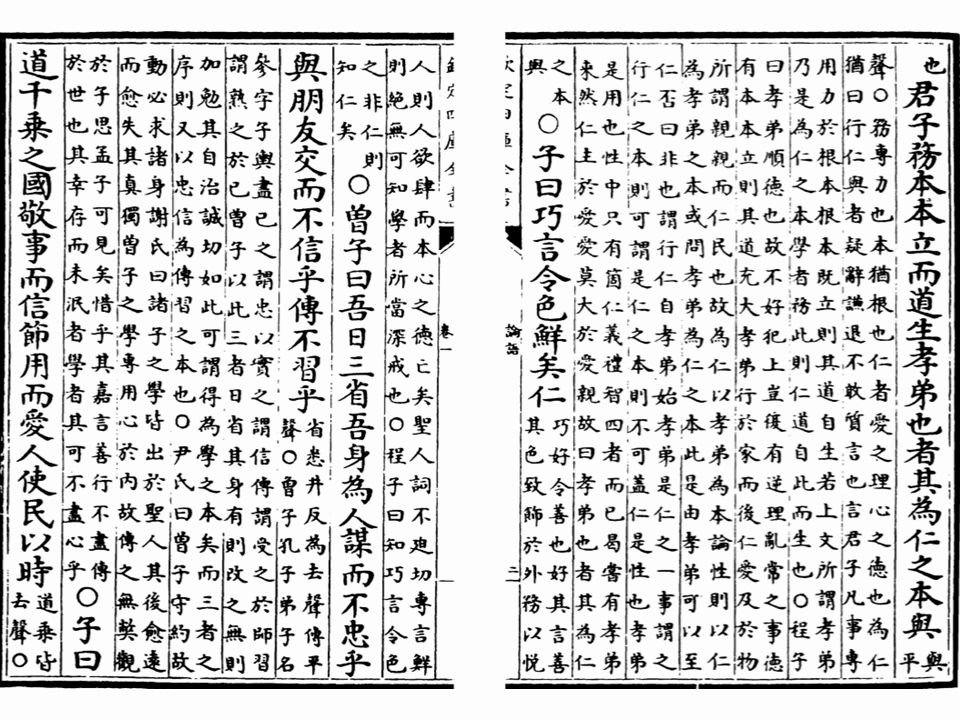 也君子務本本立而道生孝弟也者其為仁之本與與平
聲○務專力也本猶根也仁者愛之理心之德也為仁
猶曰行仁與者疑辭謙退不敢質言也言君子凡事專
用力於根本根本既立則其道自生若上文所謂孝弟
乃是為仁之本學者務此則仁道自此而生也○程子
曰孝弟順德也故不好犯上豈復有逆理亂常之事德
有本本立則其道充大孝弟行於家而後仁愛及於物
所謂親親而仁民也故為仁以孝弟為本論性則以仁
為孝弟之本或問孝弟為仁之本此是由孝弟可以至
仁否曰非也謂行仁自孝弟始孝弟是仁之一事謂之
行仁之本則可謂是仁之本則不可蓋仁是性也孝弟
是用也性中只有箇仁義禮智四者而已曷嘗有孝弟
來然仁主於愛愛莫大於愛親故曰孝弟也者其為仁
之本與○子曰巧言令色鮮矣仁巧好令善也好其言善
其色致飾於外務以悅
論語 二
卷一
人則人欲肆而本心之德亡矣聖人詞不迫切專言鮮
則絕無可知學者所當深戒也○程子曰知巧言令色
之非仁則知仁矣○曾子曰吾日三省吾身為人謀而不忠乎
與朋友交而不信乎傳不習乎省悉井反為去聲傳平
聲○曾子孔子弟子名
參字子輿盡已之謂忠以實之謂信傳謂受之於師習
謂熟之於已曾子以此三者日省其身有則改之無則
加勉其自治誠切如此可謂得為學之本矣而三者之
序則又以忠信為傳習之本也○尹氏曰曾子守約故
動必求諸身謝氏曰諸子之學皆出於聖人其後愈遠
而愈失其真獨曾子之學專用心於內故傳之無弊觀
於子思孟子可見矣惜乎其嘉言善行不盡傳
於世也其幸存而未泯者學者其可不盡心乎○子曰
道千乘之國敬事而信節用而愛人使民以時道乘皆
去聲○